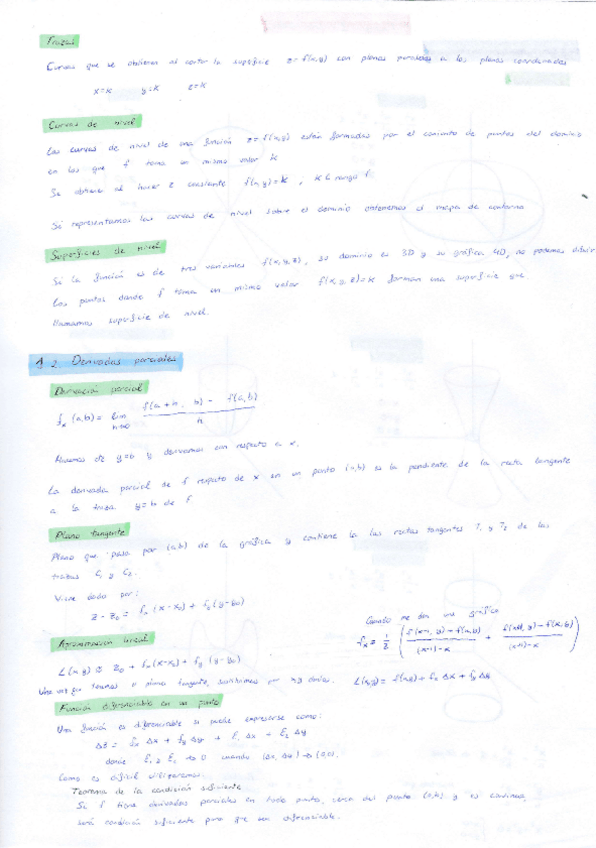 Trazas
Curvas que se obtienen al cortar la superficie z = f(x,y) con planos paralelos a los planos coordenados
x=k   y=k   z=k
Curvas de nivel
Las curvas de nivel de una función z=f(x,y) están formadas por el conjunto de puntos del dominio
en los que f toma un mismo valor k
Se obtiene al hacer z constante f(x,y)=k , k ∈ rango f
Si representamos las curvas de nivel sobre el dominio obtenemos el mapa de contorno
Superficies de nivel
Si la función es de tres variables f(x,y,z), su dominio es 3D y su gráfica 4D, no podemos dibujar
los puntos donde f toma un mismo valor f(x,y,z)=k forman una superficie que
llamamos superficie de nivel.
2. Derivadas parciales
Derivación parcial
fx (a,b) = lim h→0 (f(a+h, b) - f(a,b)) / h
y=b y derivamos con respecto a x.
La derivada parcial de f respeto de x en un punto (a,b) es la pendiente de la recta tangente
a la traza y=b de f
Plano tangente
Plano que pasa por (a,b) de la gráfica y contiene la las rectas tangentes T₁ y T₂ de las
trazas C₁ y C₂.
Viene dado por:
z - z₀ = fx (x-x₀) + (y-y₀)
Cuando me dan una gráfica
Aproximación lineal
L(x,y) ≈ z₀ + fx(x-x₀) + fy (y-y₀)
fx ≈ 1/2
Una vez que tenemos plano tangente, sustituimos por x,y L(x,y) = f(x,y) + fx Δx + fy Δy
Función diferenciable en un punto
Una función es diferenciable si puede expresarse como:
Δz = fx Δx + fy Δy + E₁ Δx + E₂ Δy
donde E₁ y E₂ → 0 cuando (Δx, Δy) → (0,0).
Como es difícil utilizaremos:
Teorema de la condición suficiente
Si f tiene derivadas parciales en todo punto, cerca del punto (a,b) y es continua,
será condición suficiente para que sea diferenciable.